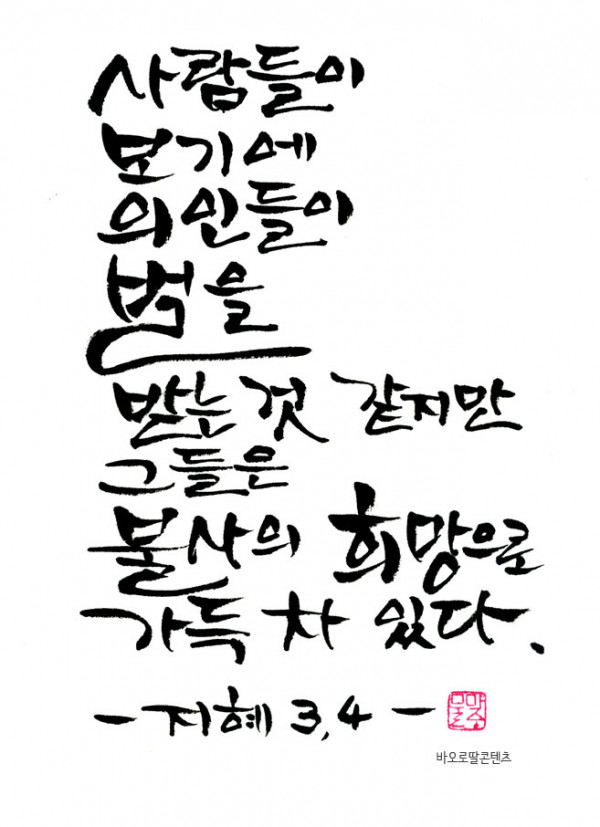 사람들이
보기에
의인들이
벌을
받는 것 같지만
그들은
불사의 희망으로
가득 차 있다.
- 지혜 3,4 -
바오로딸콘텐츠